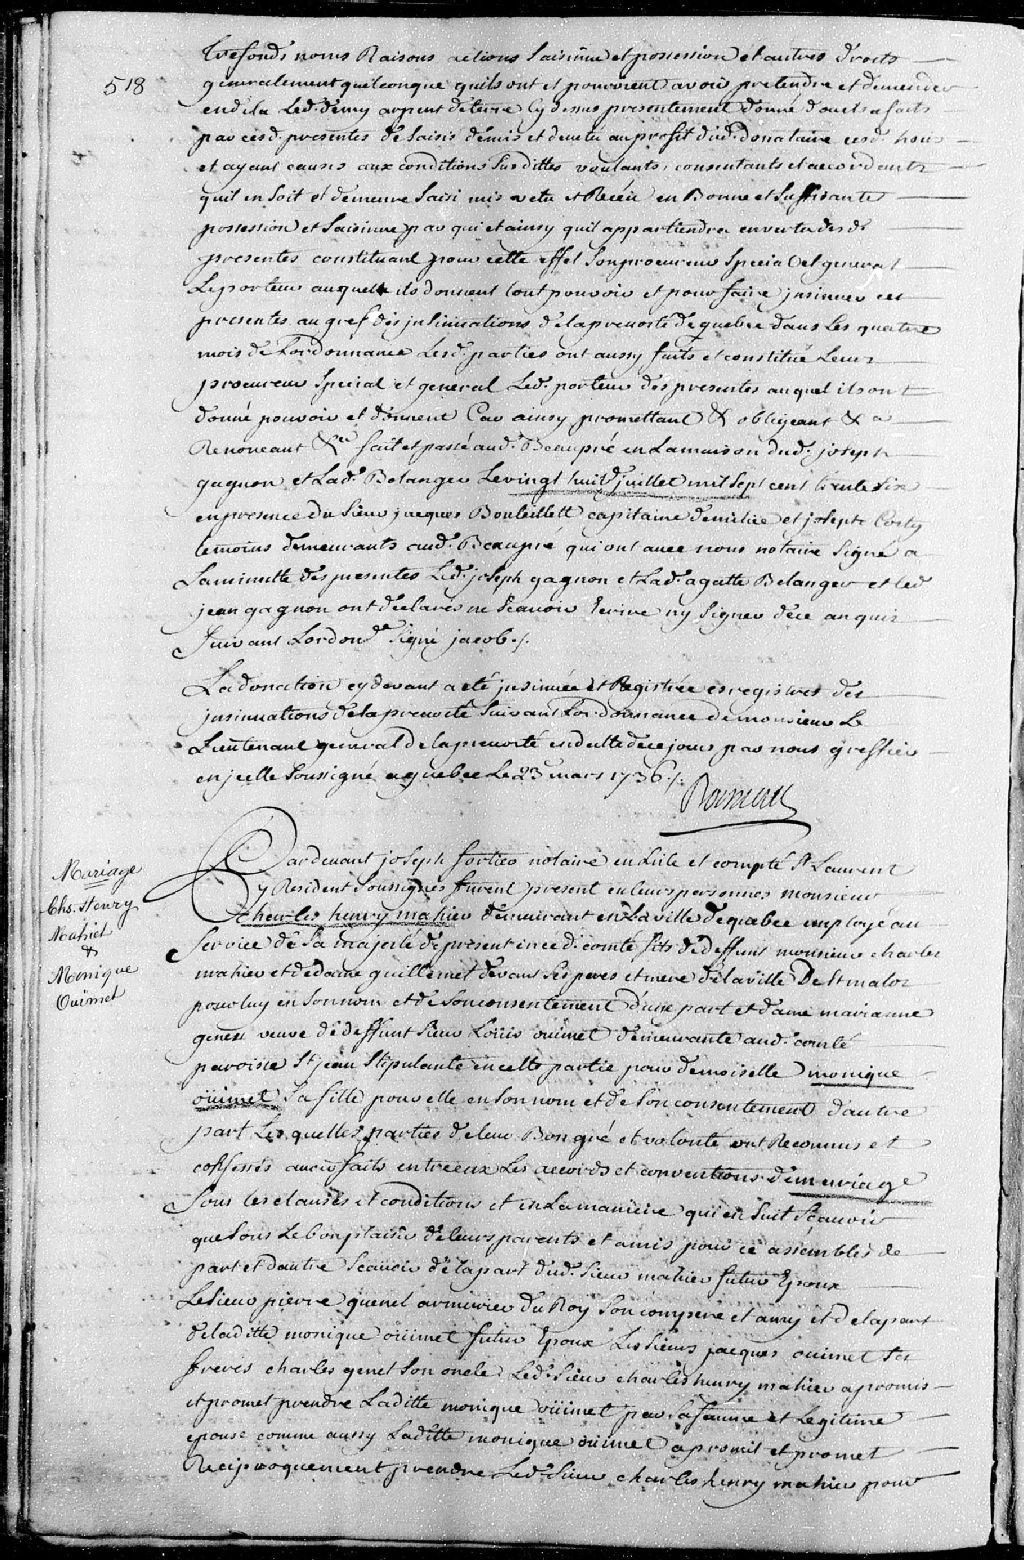 518
trefonds noms Raisons actions Saisinne et possession et autres droits
generalement quelconque quils ont et pouvoient avoir pretendre et demender
en dela Led. demy arpent de terre Cy dessus presentement donné
par cesd. presentes de saisis demis et devetu au profit dud. donataire cesd. hoirs
et ayant causes aux conditions Susdittes voulants, consentants et accordants
quil en soit et demeure Saisi mis vetu et Recëu en Bonne et Suffisante
possession et Saisinne par qui et ainsy quil appartiendra en vertu desd.
presentes constituant pour cette effet Son procureur Special et general
Le porteur auquel ils donnent tout pouvoir et pour faire jnsinuer ces
presentes au gref des jnsinuations de la prevosté de quebec dans Les quatre
mois de Lordonnance Lesd. parties ont aussy faits et constitué Leur
procureur Special et general Led. porteur des presentes auquel ils ont
donné pouvoir et donnent Car ainsy promettant & obligeant &a
Renoncant &a fait et passé aud. Beaupré en La maison dud. joseph
gagnon et Lad. Belanger Le vingt huit juillet mil Sept cent trente six
en presence du Sieur jacques Bouteillett capitaine de milice et joseph Costy
temoins demeurants aud. Beaupré qui ont avec nous notaire Signé a
La minutte des presentes Led. joseph gagnon et Lad. agatte Belanger et led
jean gagnon ont declarés ne Scavoir Ecrire ny Signer de ce enquis
Suivant Lordonce Signé jacob ./.
La donation cy devant a eté jnsinuée et Registrée es registres des
jnsinuations de la prevosté Suivant Lordonnance de monsieur Le
Lieutenant general de la prevosté en datte de ce jour par nous greffier
en jcelle Soussigné a quebec Le 23 mars 1736 ./.
Boisseau
Mariage
Chs. Henry
&
Monique
Ouimet
Pardevant joseph fortier notaire en Lisle et compté St Laurent
y Resident Soussignés furent present en leurs personnes monsieur
charles henry mahier demeurant en La ville de quebec employé au
Service de Sa majesté de present en ced. comté fils de deffunts monsieur charles
mahier et de dame guillemet devans Ses peres et mere de la ville De St malos
pour luy en Son nom et de Son consentement d'une part et dame marianne
genest veuve de deffunt Sieur Louis oüimet demeurante aud. comté
paroisse St jean Stipulante en cette partie pour demoiselle monique
oüimet Sa fille pour elle en Son nom et de Son consentement d'autre
part Lesquelles parties de leur Bon gré et volonté ont Reconnus et
confessés avoir faits entre eux Les accords et conventions de mariage
Sous les clauses et conditions et en La maniere qui en Suit Scavoir
que Sous Le bon plaisir de leurs parents et amis pour ce assemblés de
part et d'autre Scavoir de la part dud. Sieur mahier futur Epoux
Le Sieur pierre quenel armurier du Roy Son compere et amy et de la part
de laditte monique oüimet futur Epoux Les Sieurs jacques ouimet Ses
freres charles genet Son oncle Led. Sieur charles henry mahier a promis
et promet prendre Laditte monique oüimet pour Sa famme et Legitime
epouse comme aussy Laditte monique ouimet a promit et promet
Reciproquement prendre Led. Sieur charles henry mahier pour